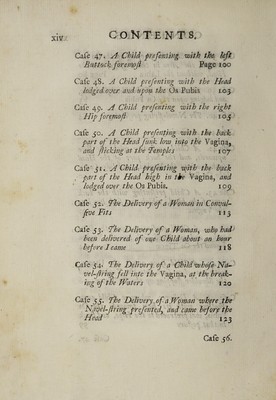 xiv CONTENTS.
Caſe 47. A Child preſenting with the left
Buttock foremoſt Page 100
Caſe 48. A Child preſenting with the Head
lodged over and upon the Os Pubis 103
Caſe 49. A Child preſenting with the right
Hip foremoſt 105
Caſe 50. A Child preſenting with the back
part of the Head ſunk low into the Vagina,
and ſticking at the Temples 107
Caſe 51. A Child preſenting with the back
part of the Head high in the Vagina, and
lodged over the Os Pubis. 109
Caſe 52. The Delivery of a Woman in Convul-
ſive Fits 113
Caſe 53. The Delivery of a Woman, who had
been delivered of one Child about an hour
before I came 118
Caſe 54. The Delivery of a Child whoſe Na-
vel-ſtring fell into the Vagina, at the break-
ing of the Waters 120
Caſe 55. The Delivery of a Woman where the
Navel-ſtring preſented, and came before the
Head 123
Caſe 56.